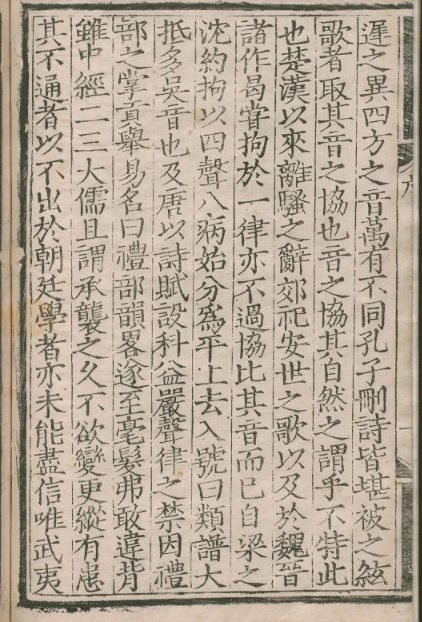 遲之異四方之音萬有不同孔子刪詩皆堪被之絃
歌者取其音之協也音之協其自然之謂乎不特此
也楚漢以來離騷之辭郊祀安世之歌以及於魏晉
諸作曷甞拘於一律亦不過協比其音而已自梁之
沈約拘以四聲八病始分爲平上去入號曰類譜大
抵多吳音也及唐以詩賦設科益嚴聲律之禁因禮
部之掌貢舉易名曰禮部韻畧遂至毫髮弗敢違背
雖中經二三大儒且謂承襲之久不欲變更縱有患
其不通者以不出於朝廷學者亦未能盡信唯武夷